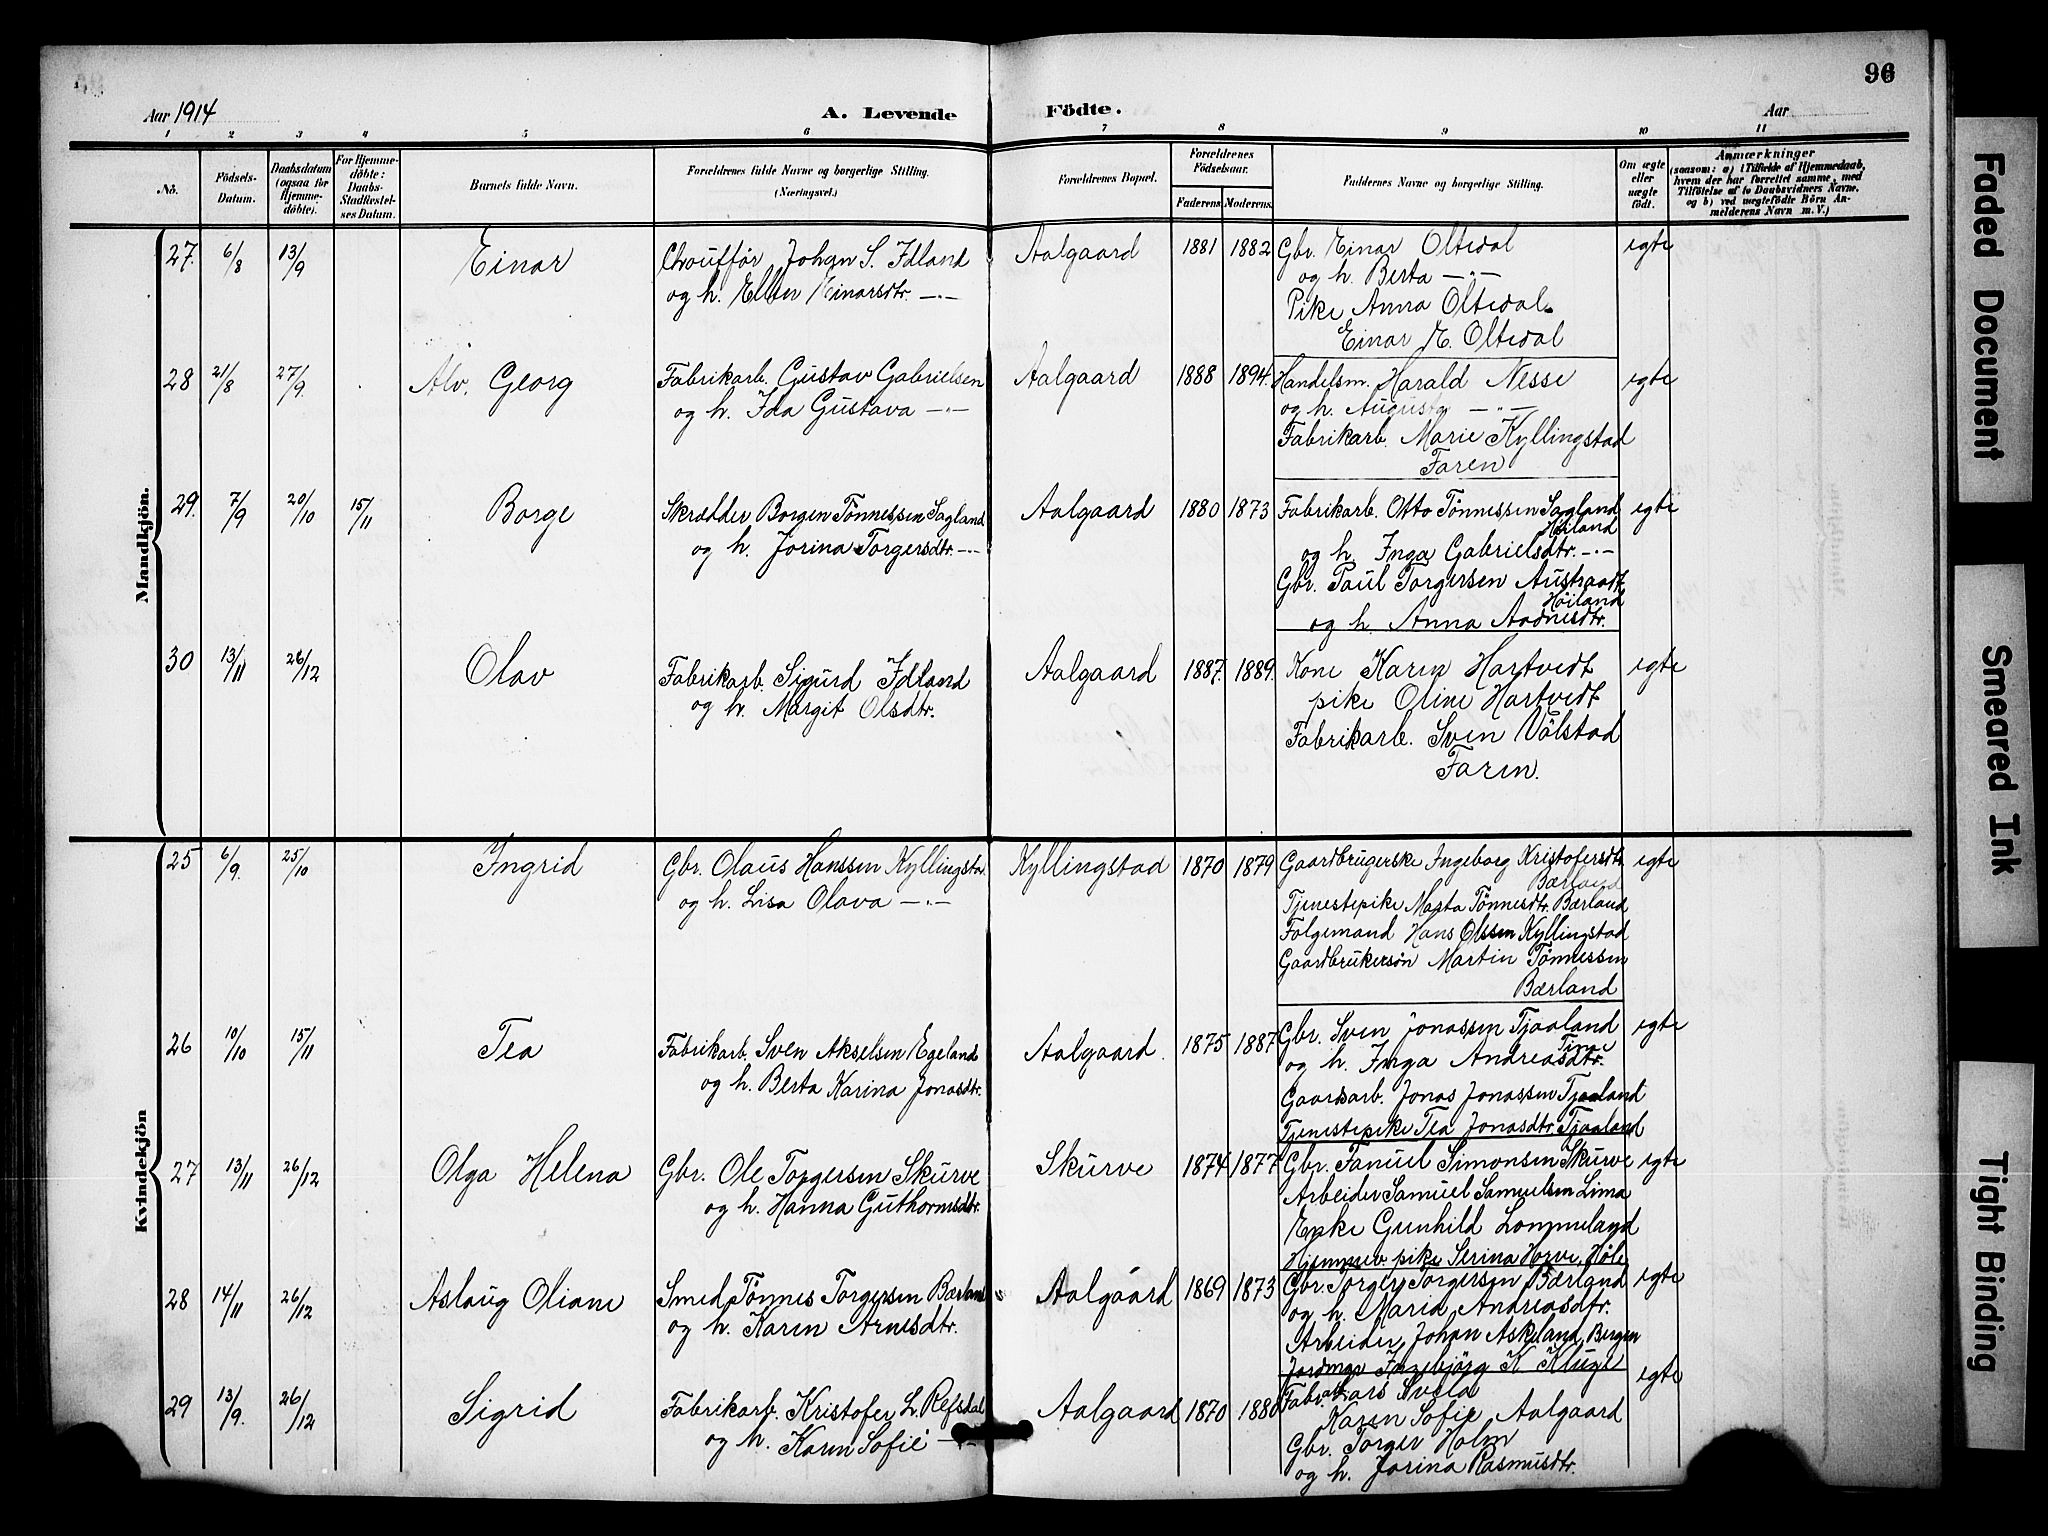 96
Aar 1914
A. Levende Födte.
Aar
1 2 3 4 5 6 7 8 9 10 11
No.
Födsels-Datum.
Daabsdatum (ogsaa for Hjemmedöbte).
For Hjemmedöbte: Daabs-Stadfæstelses Datum.
Barnets fulde Navn.
Forældrenes fulde Navne og borgerlige Stilling. (Næringsvei.)
Forældrenes Bopæl.
Forældrenes Födselsaar.
Faderens. Moderens.
Faddernes Navne og borgerlige Stilling.
Om ægte eller uægte födt.
Anmærkninger
(saasom: a) i Tilfælde af Hjemmedaab, hvem der har forrettet samme, med Tilföielse af to Daabsvidners Navne, og b) ved uægtefödte Börn Anmelderens Navn m. V.)
Mandkjön.
27. 6/8 13/9 Einar
Chouffør Johan S. Idland
og h. Ellen Einarsdtr. —"—
Aalgaard 1881 1882
Gbr. Einar Oltedal
og h. Berta —"—
Pike Anna Oltedal
Einar E. Oltedal
egte
28 21/8 27/9. Alv. Georg
Fabrikarb. Gustav Gabrielsen
og h. Ida Gustava —"—
Aalgaard 1888 1894.
Handelsm. Harald Nesse
og h. Augusta —"—
Fabrikarb. Marie Kyllingstad
Faren
egte
29. 7/9 20/10 15/11 Borge
Skrædder Borgen Tønnessen Sagland
og h. Jorina Torgersdtr. —"—
Aalgaard 1880 1873
Fabrikarb. Otto Tønnessen Sagland
Høiland
og h. Inga Gabrielsdtr. —"—
Gbr. Paul Torgersen Austraadt
Høiland
og h. Anna Aadnesdtr.
egte
30 13/11 26/12 Olav
Fabrikarb. Sigurd Idland
og h. Margit Olsdtr.
Aalgaard 1887. 1889.
Kone Karen Hartvedt
pike Oline Hartvedt
Fabrikarb. Sven Vølstad
Faren.
egte
Kvindekjön
25 6/9. 25/10 Ingrid
Gbr. Olaus Hanssen Kyllingstad
og h. Lisa Olava —"—
Kyllingstad 1870 1879
Gaardbrugerske Ingeborg Kristofersdtr
Bærland
Tjenestepike Marta Tønnesdtr. Bærland
Folgemand Hans Olssen Kyllingstad
Gaardbrukersøn Martin Tønnessen
Bærland
egte
26 10/10 15/11 Tea
Fabrikarb. Sven Akselsen Egeland
og h. Berta Karina Jonasdtr.
Aalgaard. 1875 1887
Gbr. Sven Jonassen Tjaaland
Time
og h. Inga Andreasdtr.
Gaardsarb. Jonas Jonassen Tjaaland
Tjenestepike Tea Jonasdtr. Tjaaland
egte
27 13/11 26/12 Olga Helena
Gbr. Ole Torgersen Skurve
og h. Hanna Guthormsdtr.
Skurve 1874 1877
Gbr. Fanuel Simonsen Skurve
Arbeider Samuel Samuelsen Lima
Enke Gunhild Lommeland
Hjemmev. pike Serina Horve, Høle
egte
28 14/11 26/12 Aslaug Oliane
Smed Tønnes Torgersen Bærland
og h. Karen Arnesdtr.
Aalgaard 1869 1873
Gbr. Torger Torgersen Bærland
og h. Maria Andreasdtr.
Arbeider Johan Askeland, Bergen
Jordmor Ingebjørg K. Kluge
egte
29 13/9. 26/12 Sigrid
Fabrikarb. Kristofer L. Refsdal
og h. Karen Sofie —"—
Aalgaard 1870 1880
Fabr.arb. Lars Svela
Karen Sofie Aalgaard
Gbr. Torger Holm
og h. Jorina Rasmusdtr.
egte
Faded Document
Smeared Ink
Tight Binding